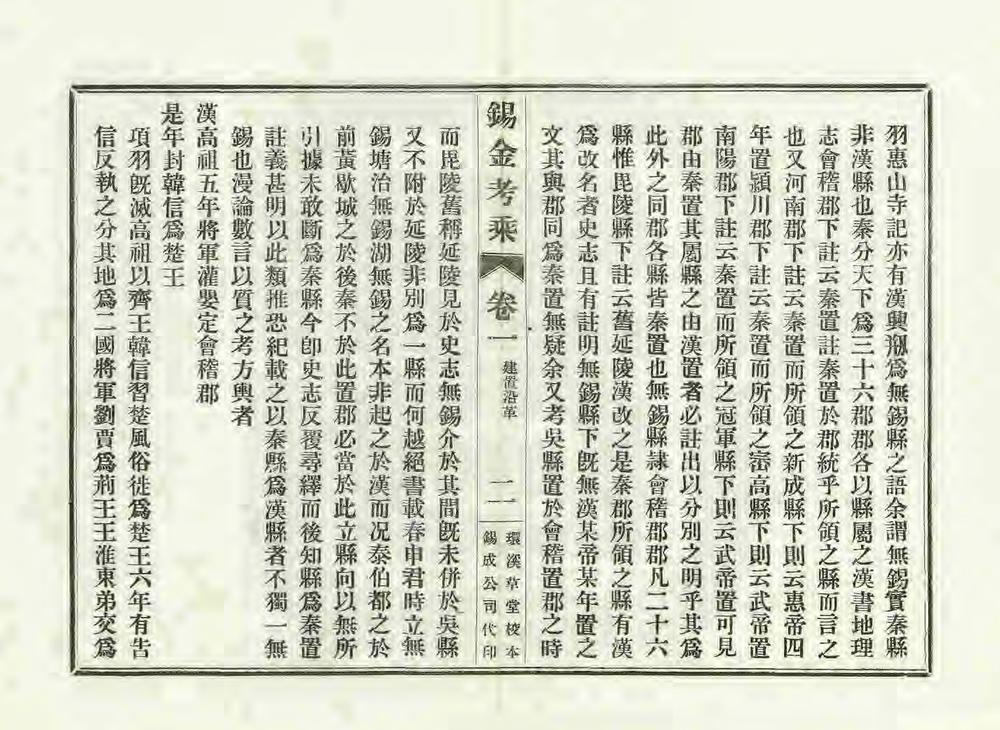 羽惠山寺記亦有漢興刱爲無錫縣之語余謂無錫實秦縣
非漢縣也秦分天下爲三十六郡郡各以縣屬之漢書地理
志會稽郡下註云秦置註秦置於郡統乎所領之縣而言之
也又河南郡下註云秦置而所領之新成縣下則云惠帝四
年置潁川郡下註云秦置而所領之崈高縣下則云武帝置
南陽郡下註云秦置而所領之冠軍縣下則云武帝置可見
郡由秦置其屬縣之由漢置者必註出以分別之明乎其爲
此外之同郡各縣皆秦置也無錫縣隷會稽郡郡凡二十六
縣惟毘陵縣下註云舊延陵漢改之是秦郡所領之縣有漢
爲改名者史志且有註明無錫縣下旣無漢某帝某年置之
文其與郡同爲秦置無疑余又考吳縣置於會稽置郡之時
錫金考乘
卷一
建置沿革
二
環溪草堂校本
錫成公司代印
而毘陵舊稱延陵見於史志無錫介於其間旣未併於吳縣
又不附於延陵非別爲一縣而何越絕書載春申君時立無
錫塘治無錫湖無錫之名本非起之於漢而况泰伯都之於
前黃歇城之於後秦不於此置郡必當於此立縣向以無所
引據未敢斷爲秦縣今卽史志反覆尋繹而後知縣爲秦置
註義甚明以此類推恐紀載之以秦縣爲漢縣者不獨一無
錫也漫論數言以質之考方輿者
漢高祖五年將軍灌嬰定會稽郡
是年封韓信爲楚王
項羽旣滅高祖以齊王韓信習楚風俗徙爲楚王六年有告
信反執之分其地爲二國將軍劉賈爲荊王王淮東弟交爲